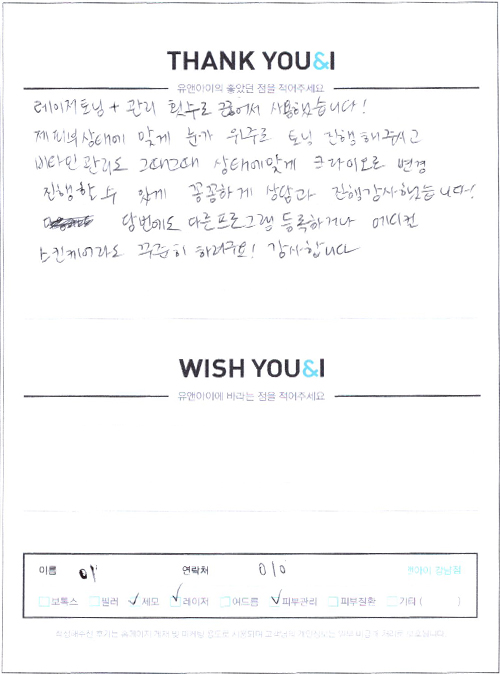 THANK YOU&I
유앤아이의 좋았던 점을 적어주세요
레이저토닝 + 관리 횟수로 끊어서 사용했습니다!
제 피부상태에 맞게 눈가 위주로 토닝 진행해주시고
비타민관리도 그때그때 상태에맞게 크라이오로 변경
진행할 수 있게 꼼꼼하게 상담과 진행감사했습니다!
담번에도 다른프로그램 등록하거나 메디컬
스킨케어라도 꾸준히 하려구요! 감사합니다
WISH YOU&I
유앤아이에 바라는 점을 적어주세요
이름 이 연락처 010 유앤아이 강남점
보톡스 필러 제모 레이저 여드름 피부관리 피부질환 기타 ( )